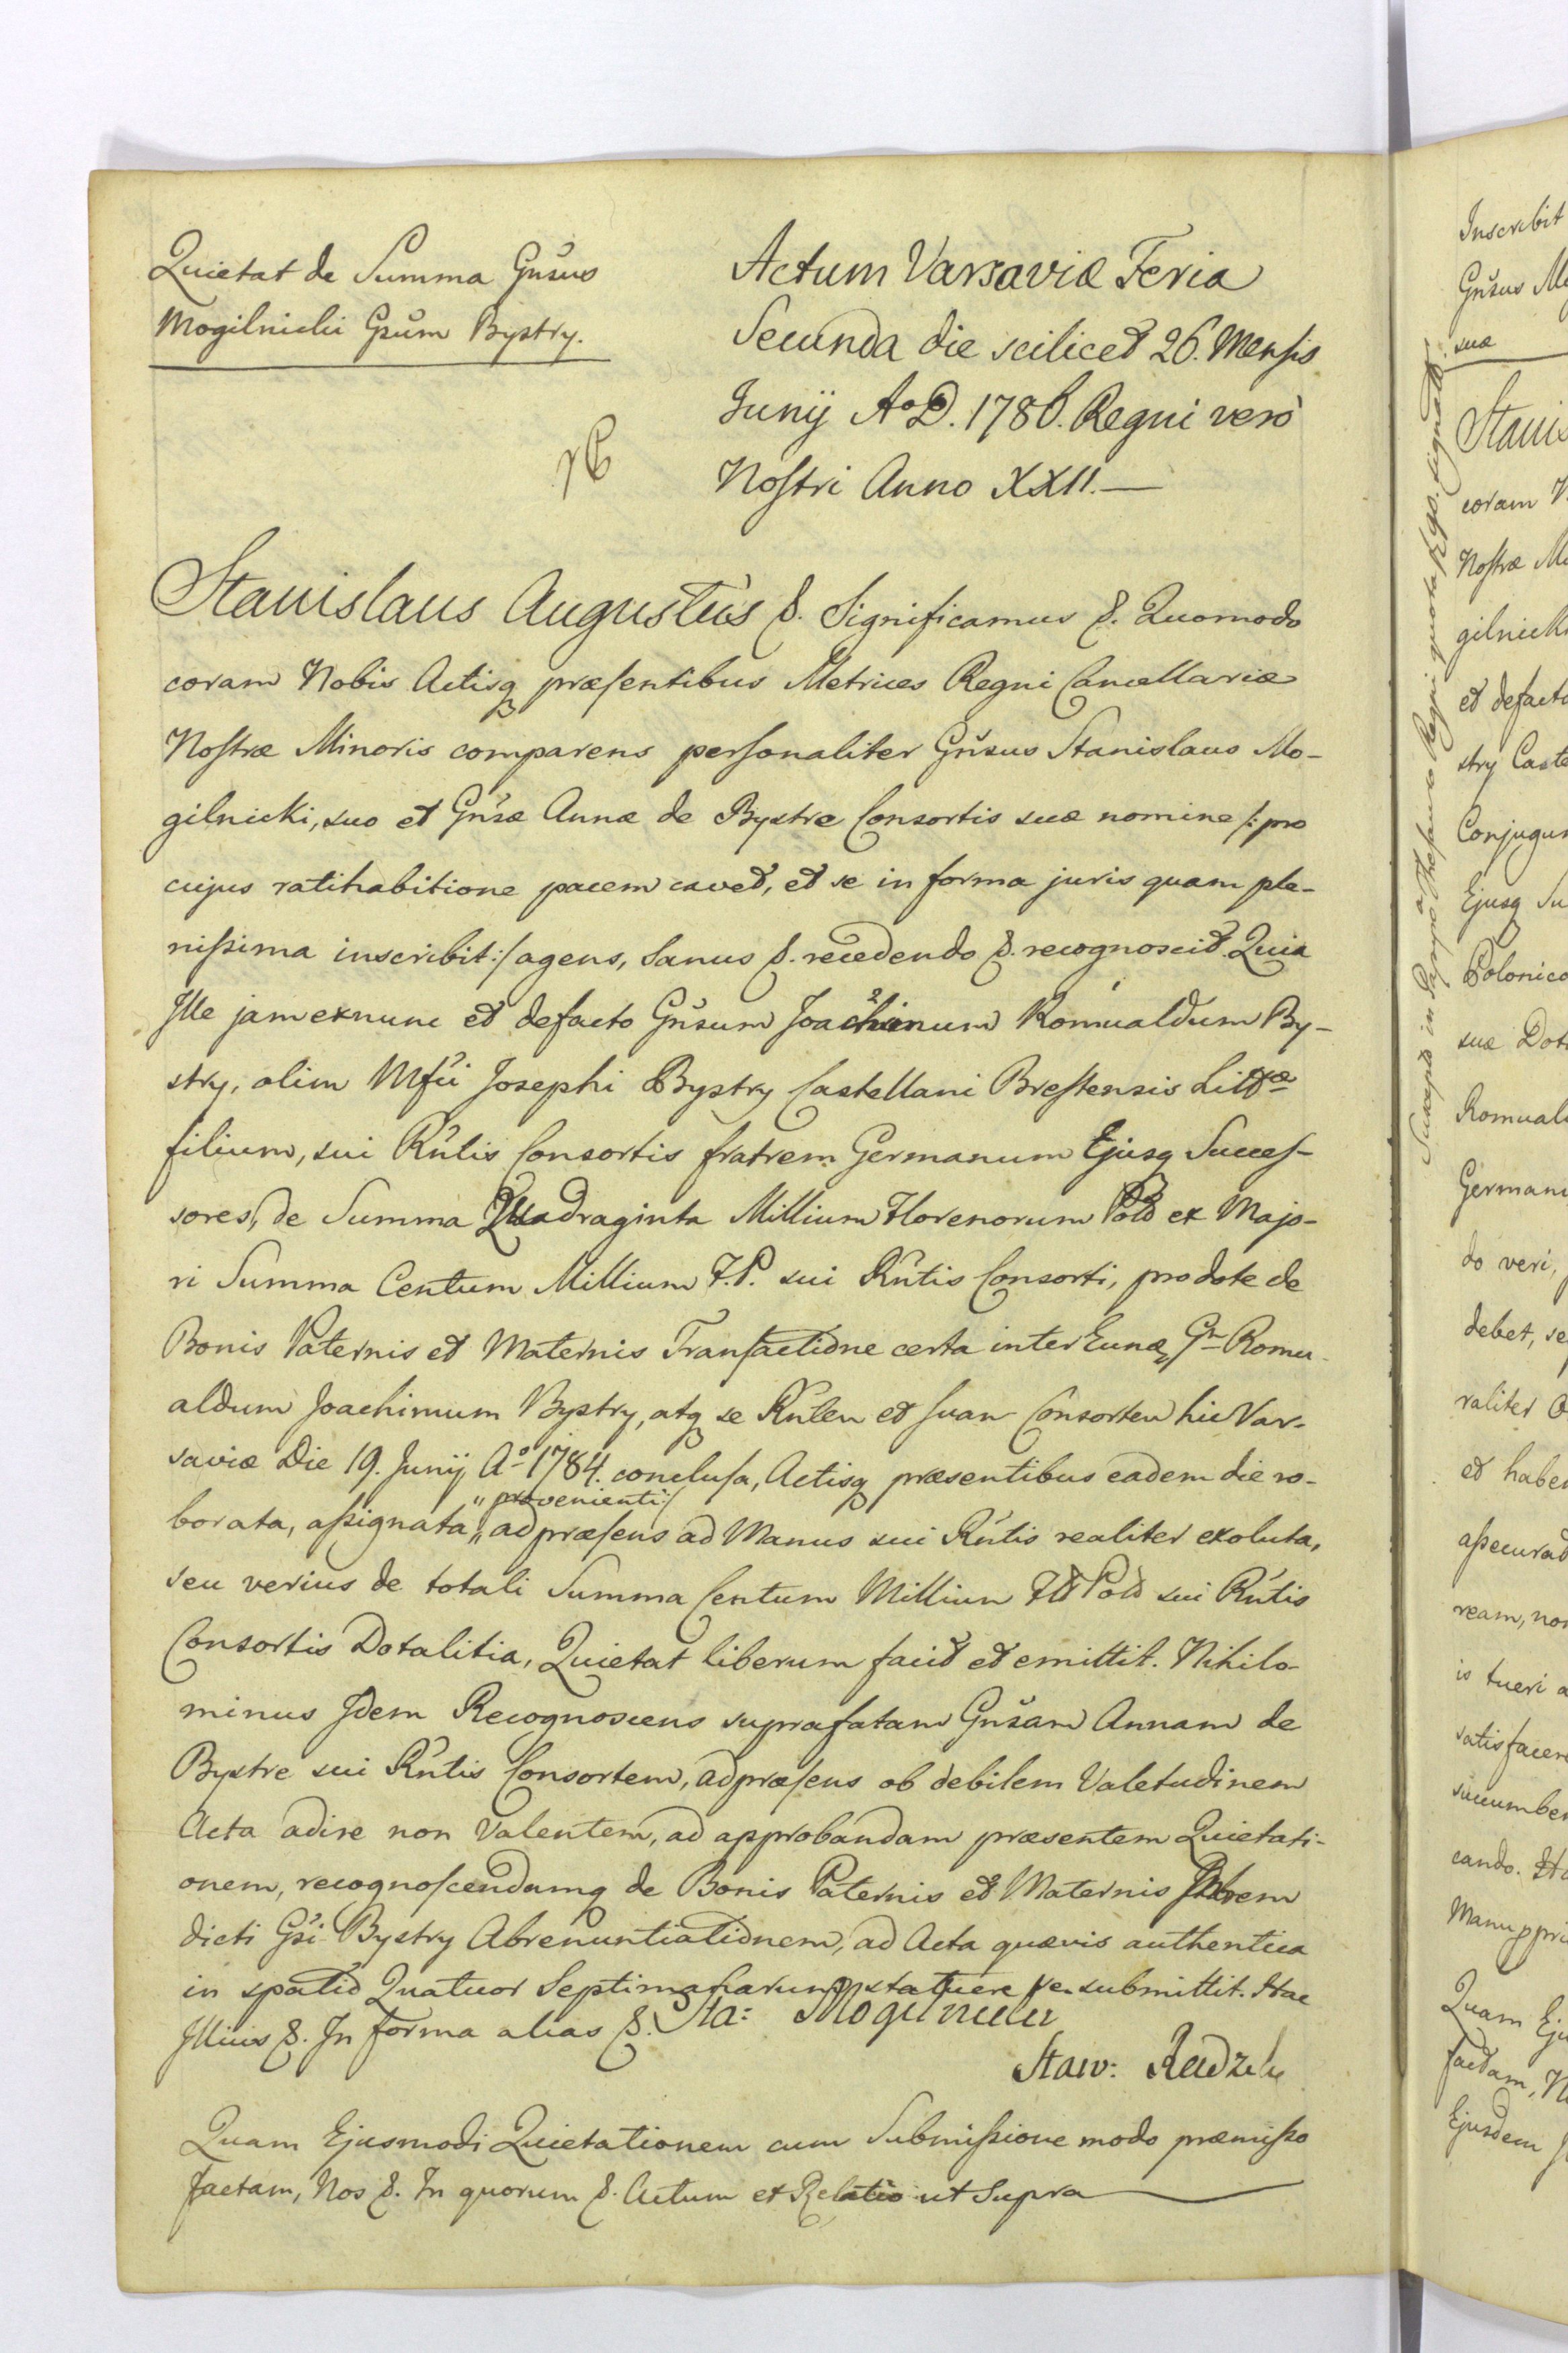 Quietat de Summa Gnsus
Mogilnicki Gsum Bystry.
Actum Varsaviæ Feria
Secunda die scilicet 26. Mensis
Junÿ AoD. 1786. Regni verò
Nostri Anno XXII.—
Stanislaus Augustus &. Significamus &. Quomodo
coram Nobis Actisq præsentibus Metrices Regni Cancellariæ
Nostræ Minoris comparens personaliter Gnsus Stanislaus Mo-
gilnicki, suo et Gnsæ Annæ de Bystre Consortis suæ nomine /: pro
cujus ratihabitione pacem cavet, et se in forma juris quam ple-
nissima inscribit :/ agens, Sanus &. recedendo &. recognoscit. Quia
Ille jam exnunc et defacto Gnsum Joachimum Romualdum By-
stry, olim Mfci Josephi Bystry Castellani Brestensis Littæ
filium, sui Rntis Consortis fratrem Germanum Ejusq Succes-
sores, de Summa Quadraginta Millium Florenorum Pold ex Majo-
ri Summa Centum Millium F.P. sui Rntis Consorti, pro dote de
Bonis Paternis et Maternis Transactione certa inter Eundq Gn Romu-
aldum Joachimum Bystry, atq se Rntem et suam Consortem hic Var-
saviæ Die 19. Junÿ Ao 1784. conclusa, Actisq præsentibus eadem die ro-
" provenienti :/
borata, assignata " ad præsens ad Manus sui Rntis realiter exoluta,
seu verius de totali Summa Centum Millium Fld Pold sui Rntis
Consortis Dotalitia, Quietat liberum facit et emittit. Nihilo-
minus Idem Recognoscens suprafatam Gnsam Annam de
Bystre sui Rntis Consortem, ad præsens ob debilem Valetudinem
Acta adire non valentem, ad approbandam præsentem Quietati-
onem, recognoscendamq de Bonis Paternis et Maternis
dicti Gsi Bystry Abrenuntiationem, ad Acta quævis authentica
in spatio Quatuor Septimanarum statuere se submittit. Hac
Illius &. In forma alias &. Sta: Mogilnicki
Staw:
Quam Ejusmodi Quietationem cum Submissione modo præmisso
factam, Nos &. In quorum &. Actum et Relatio ut Supra
Inscribit
Gnsus
suæ
Stanis
coram
Nostræ
gilnicki
et defacto
stry
Conjugum
Ejusq
Polonico
suæ
Romual
German
do veri,
debet,
raliter
et haben
assecurat
ream, non
is tueri
satisfacere
succumben
cando.
Quam
factam,
Ejusdem